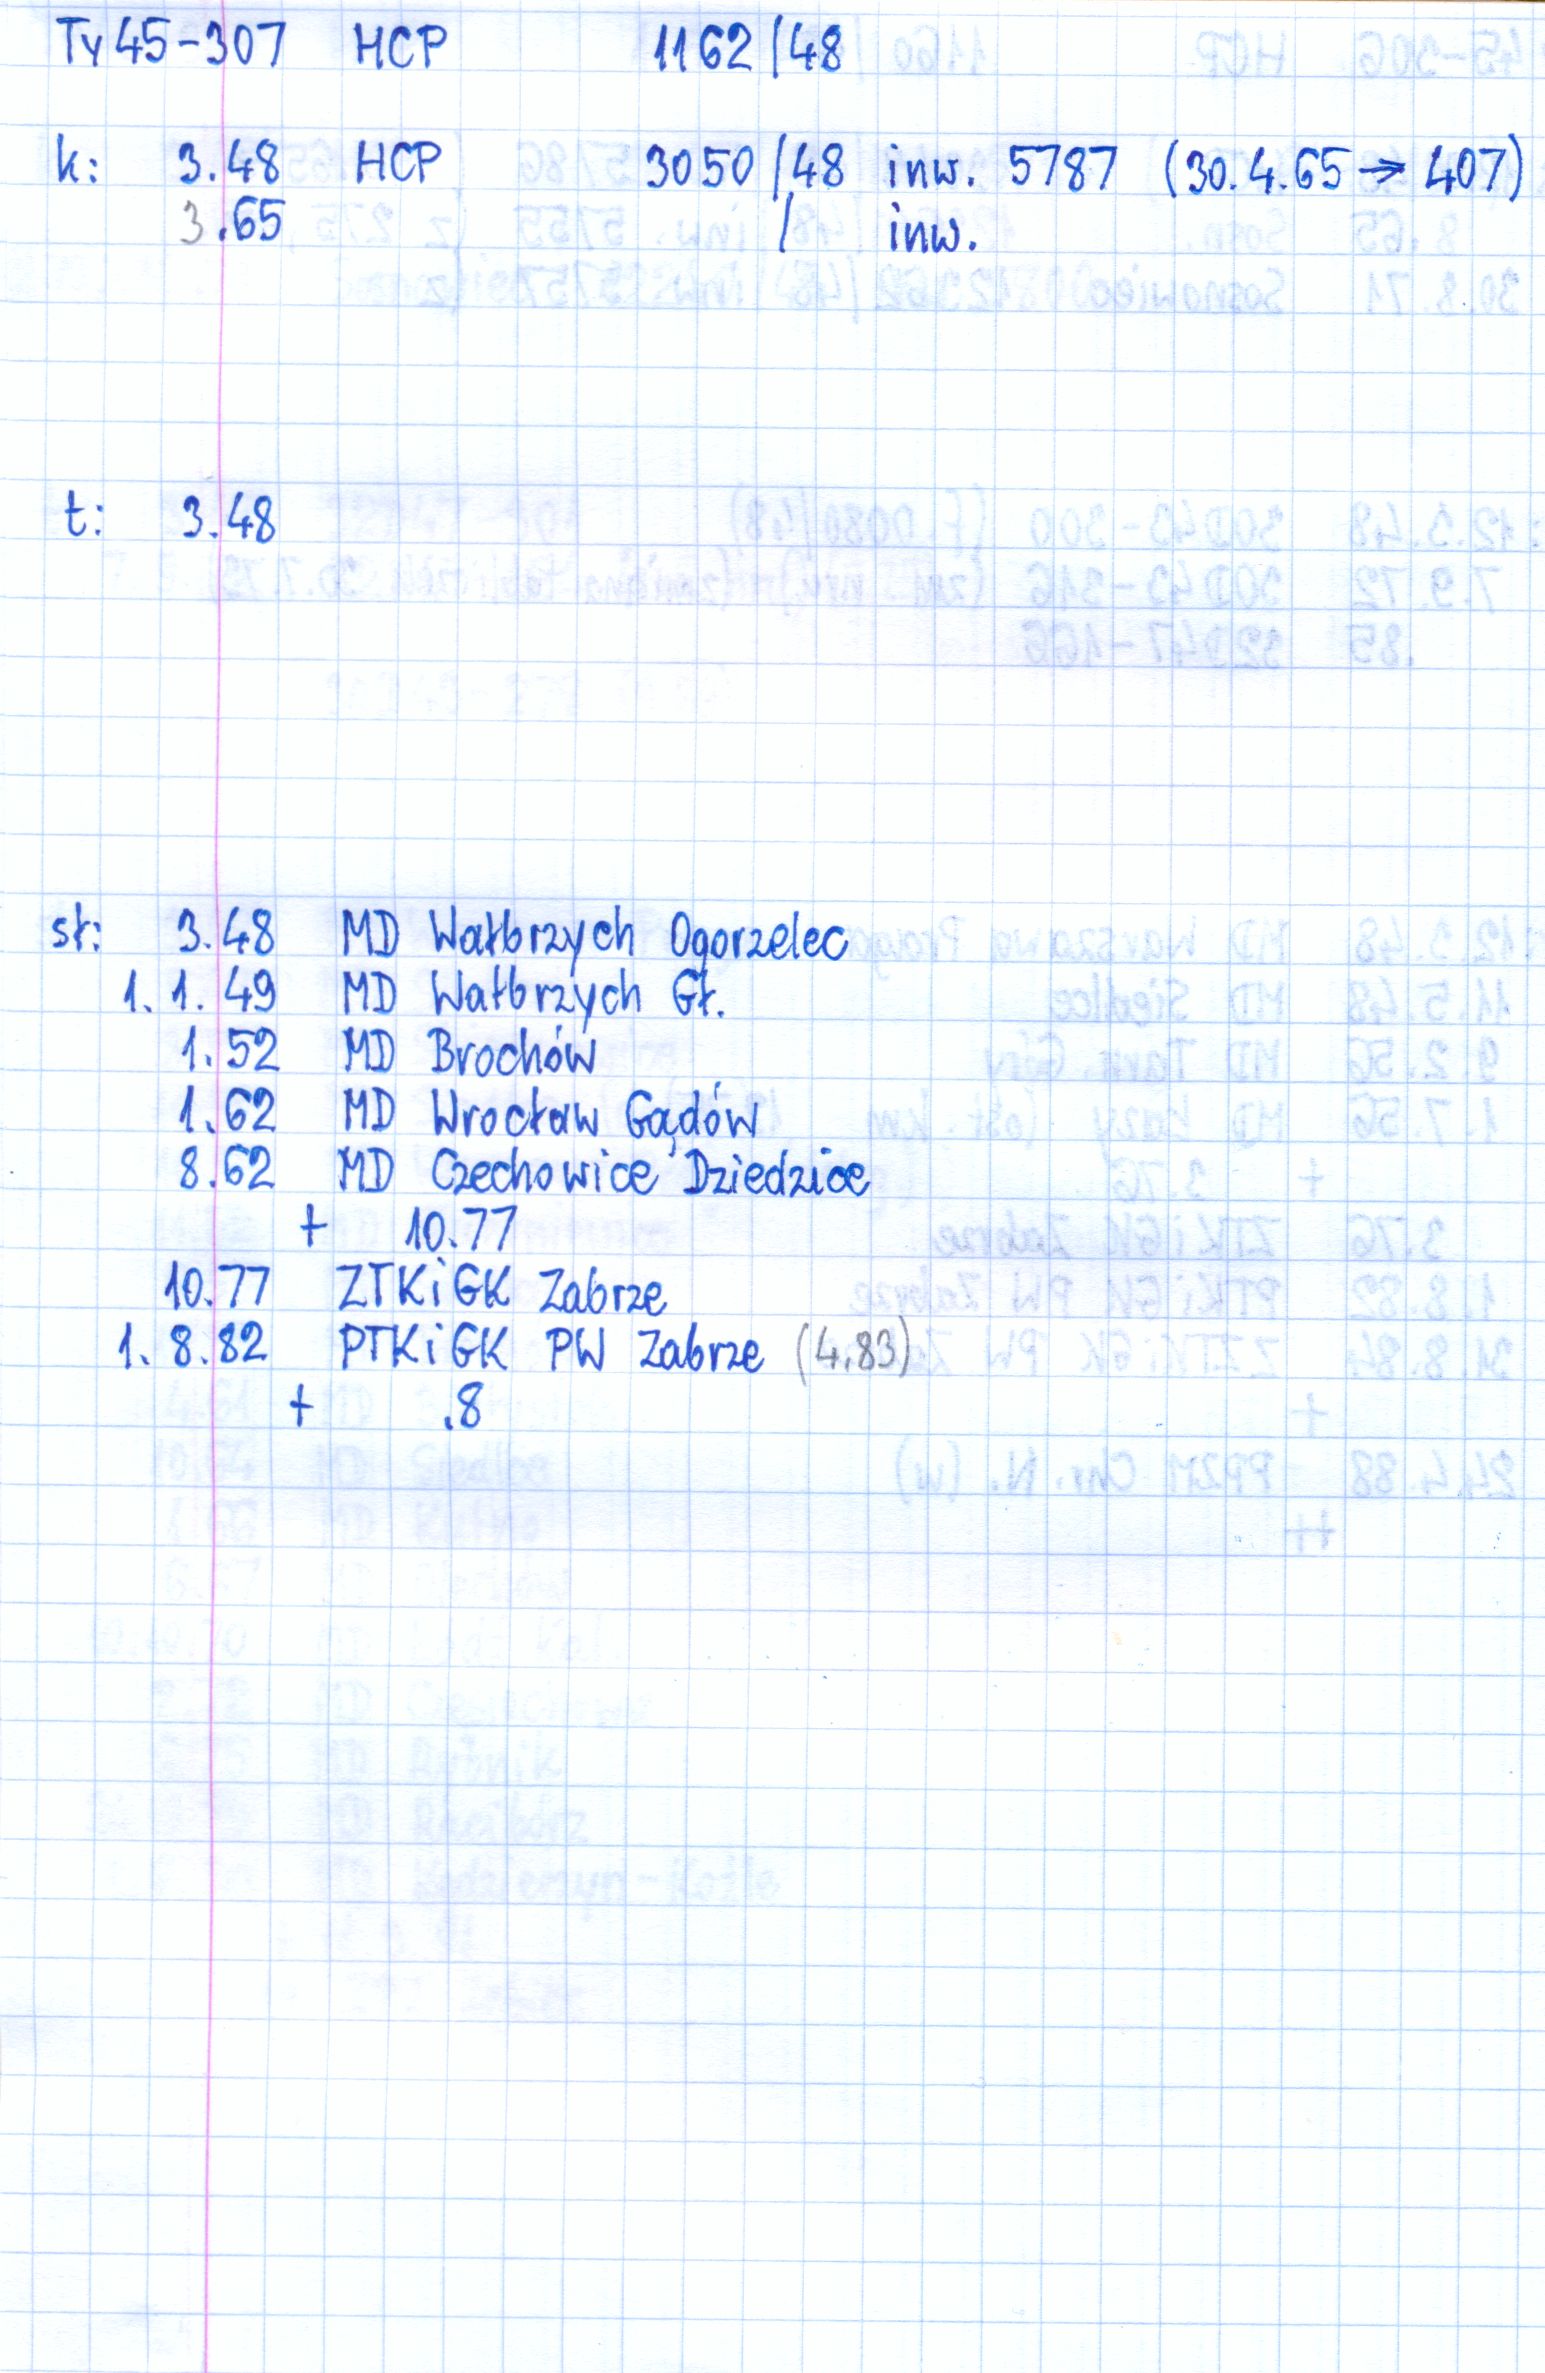 Ty45-307 HCP 1162/48
k: 3.48 HCP 3050/48 inw. 5787 (30.4.65 → 407)
3.65 / inw.
t: 3.48
st: 3.48 MD Wałbrzych Ogorzelec
1.1.49 MD Wałbrzych Gł.
1.52 MD Brochów
1.62 MD Wrocław Gądów
8.62 MD Czechowice Dziedzice
+ 10.77
10.77 ZTKiGK Zabrze
1.8.82 PTKiGK PW Zabrze (4.83)
+ .8